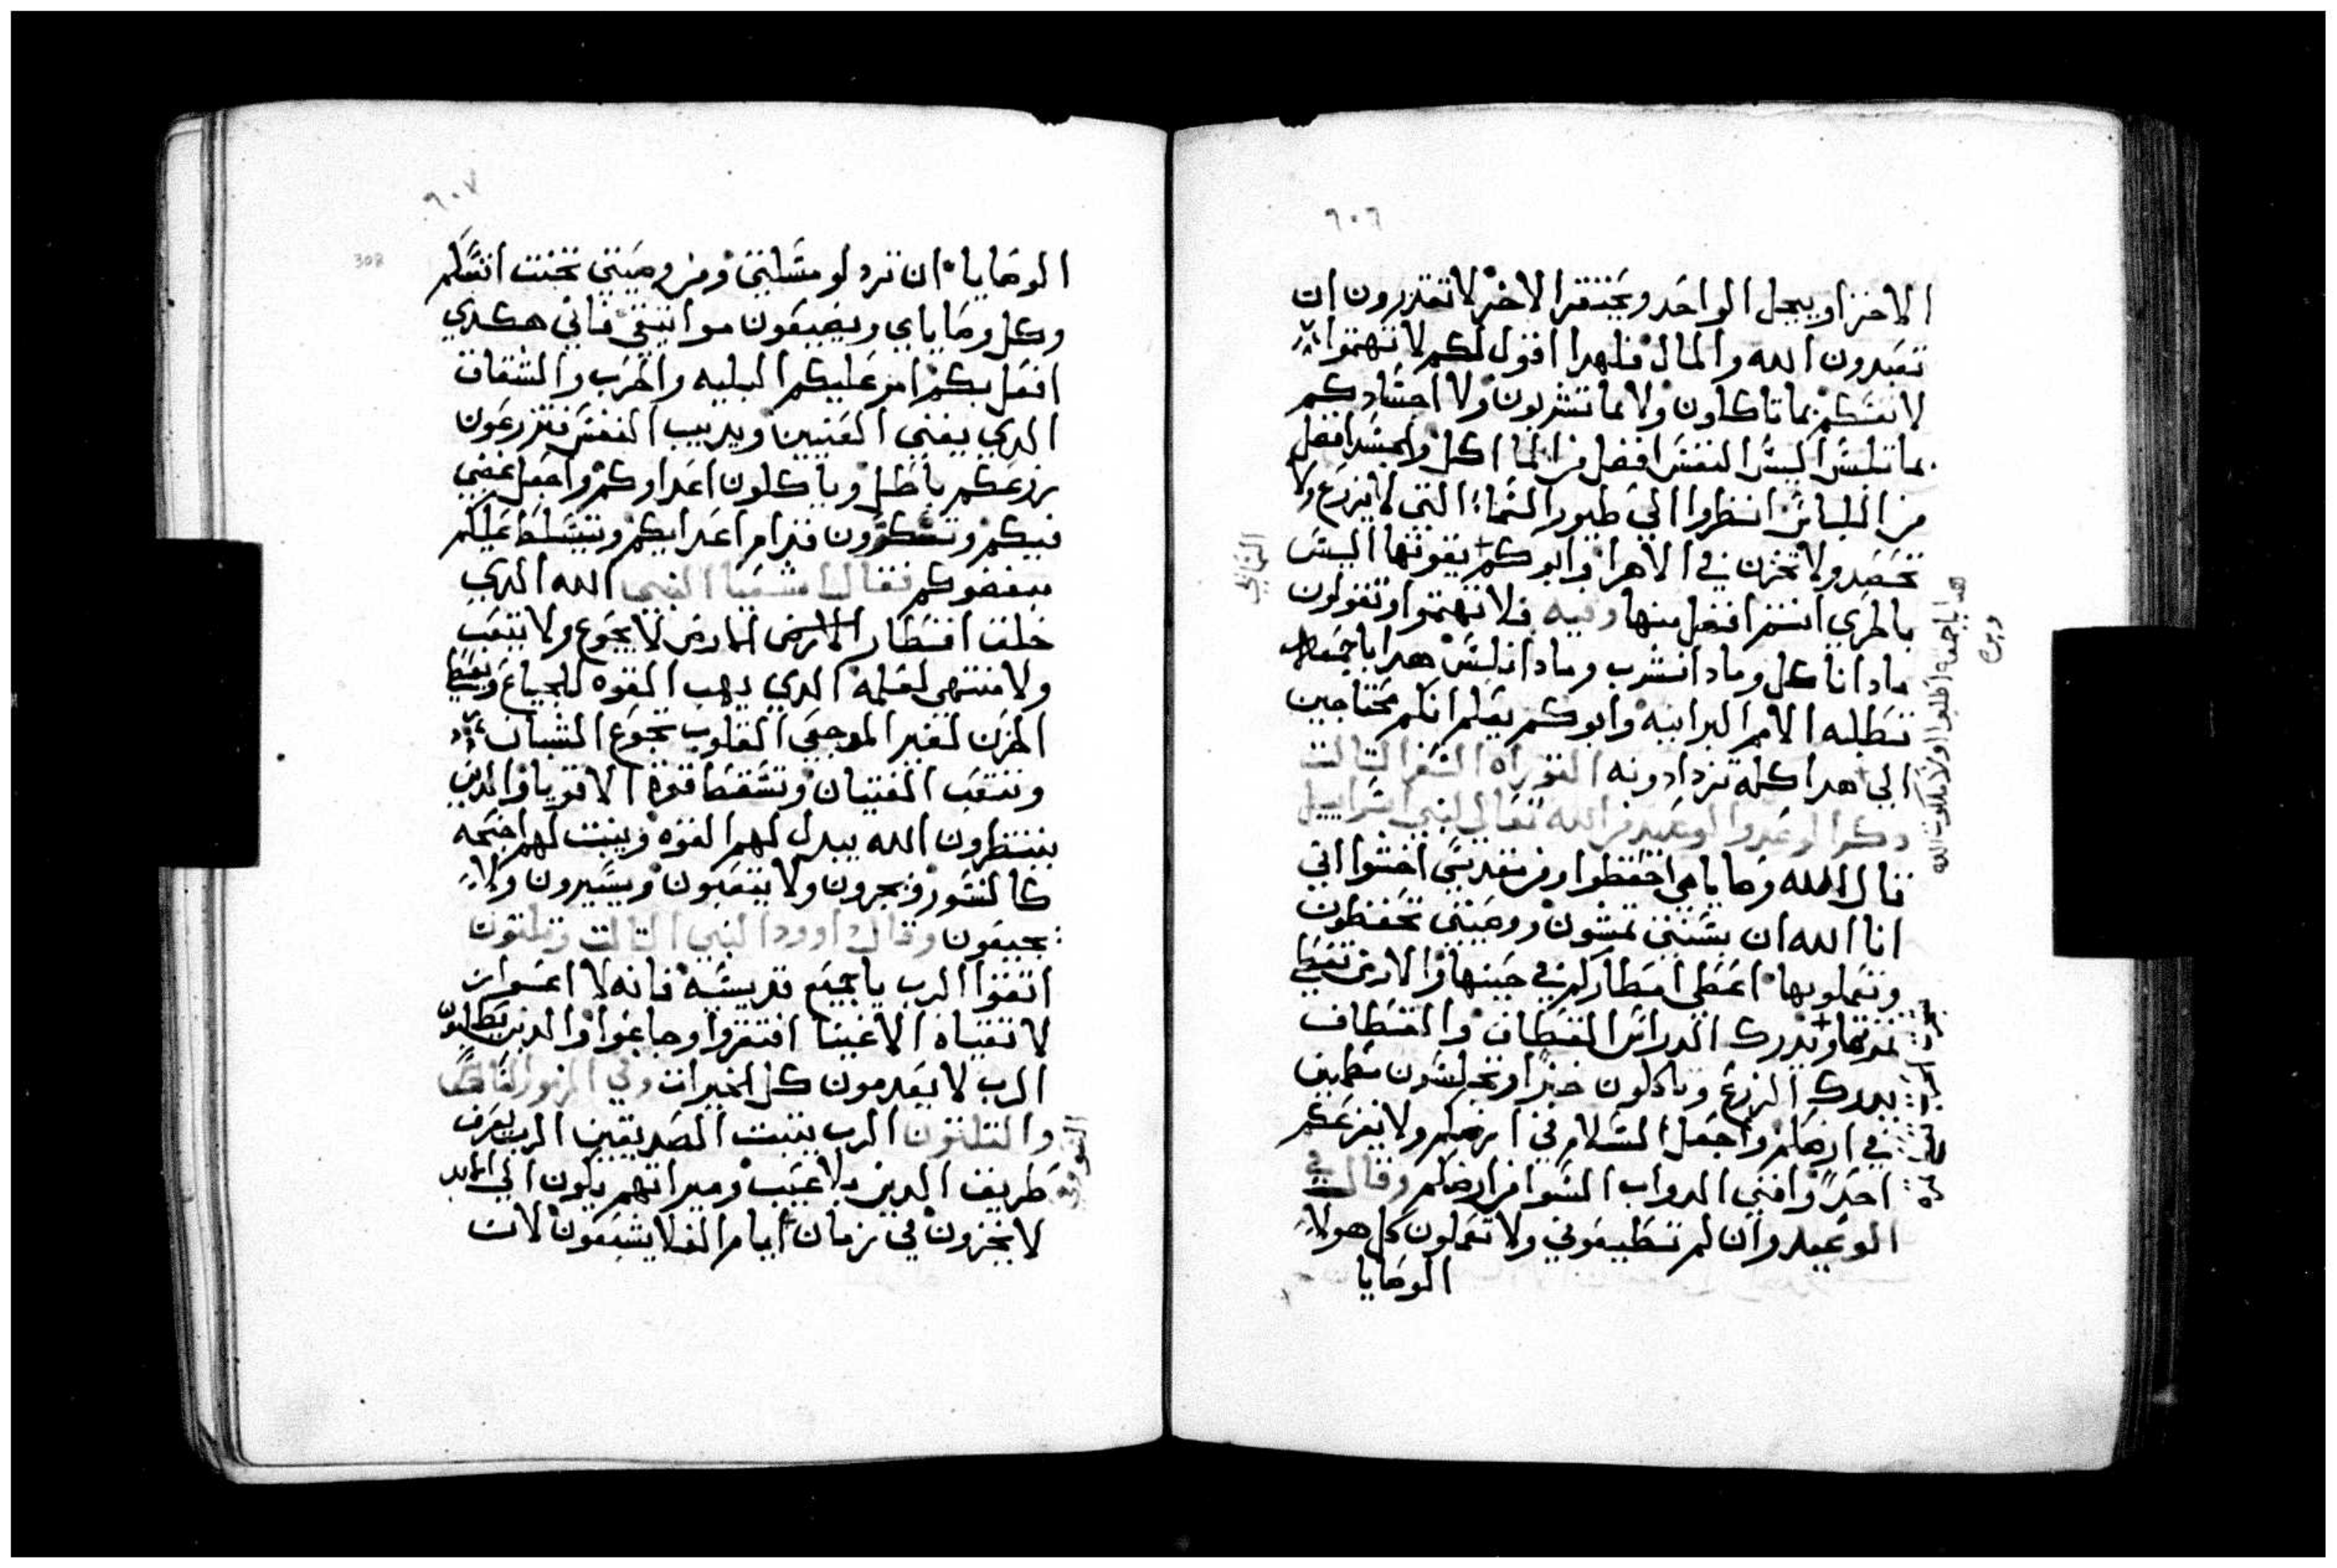 ٦٠٦
الاخر او يبجل الواحد ويحتقر الاخر لا تقدرون ان
تعبدون الله والمال فلهدا اقول لكم لا تهتموا
لانفسكم بما تاكلون ولا بما تشربون ولا اجسادكم
بما تلبس اليس النفس افضل من الماكل والجسد افضل
من اللباس انظروا الي طيور السما التي لا يزرع ولا
تحصد ولا تخزن في الاهرا وابوكم يقوتها اليس
بالحري انتم افضل منها وفيه فلا تهتموا وتقولون
مادا ناكل ومادا نشرب ومادا نلبس هدا باجمعه
تطلبه الامم البرانيه وابوكم يعلم انكم محتاجين
الي هدا كله تزدادونه التوراه السفر التالت
دكر الوعد والوعيد من الله تعالي لبني اسراييل
قال الله وصاياي احفظوا ومن مقدسي اخشوا اني
انا الله ان بسنني تمشون ووصيتي تحفظون
وتعملوبها اعطي امطاركم في حينها والارض تعطي
تمرتها وتدرك الدراس القطاف والقطاف
يدرك الزرع وياكلون خبزا وتجلسون مطمين
في ارضكم واجعل السلام في ارضكم ولا يفزعكم
احدا وافني الدواب السوا من ارضكم وقال في
الوعيد وان لم تطيعوني ولا تعملون كل هولا
الوصايا
هدا باجمعه اطلبوا اولا ملكوت الله
وبره
٦٠٧
308
الوصايا ان تردلو مسليتي ومن وصيتي تجنت انفسكم
وكل وصاياي ويضيعون مواتيقي فاني هكدي
افعل بكم امر عليكم البليه والحرب والشقاق
الدي يفني العنيين ويديب النفس فتزرعون
زرعكم باطل وياكلون اعداوكم واجعل غضبي
فيكم وتنكسرون قدام اعدايكم ويتسلط عليكم
مبغضوكم فقال اشعيا النبي الله الدي
خلق اقطار الارض لا يجوع ولا يتعب
ولا منتهي لعلمه الدي يهب القوه للجياع ويعطي
الحزن لغير الموجعي القلوب يجوع الشبان
وتتعب الفتيان وتسقط قوة الاقويا والدين
ينتظرون الله يبدل لهم القوه وينبت لهم اجنحه
كالنسور فيجرون ولا يتعبون ويسيرون ولا
يجيعون وقال داوود النبي التالت وتلتون
اتقوا الرب يا جميع قديسيه فانه لا اعسوار
لاتقياه الاغنيا افتقروا وجاعوا والدين يطلبون
الرب لا يعدمون كل الخيرات وفي المزمور السادس
والتلتون الرب يتبت الصديقين الرب يعرف
طريق الدين بلا عيب وميراتهم يكون الي الابد
لا يخزون في زمان ايام الغلا يشبعون لان